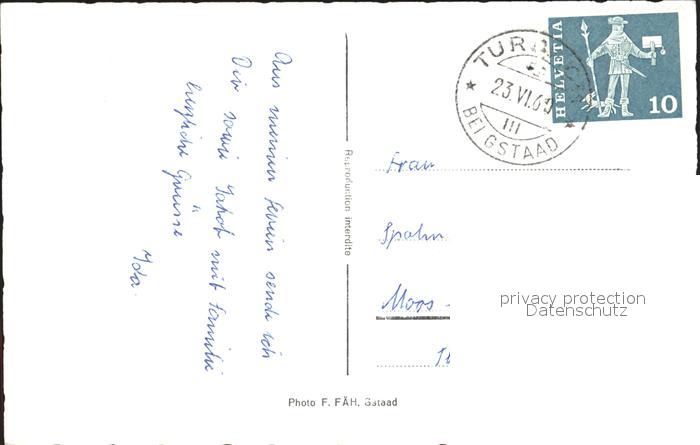 Aus meinen Ferien sende ich
Dir sowie Jakob mit Familie
herzliche Grüsse
Ida.
Reproduktion interdite
Photo F. FÄH, Gstaad
TUR
23.VI.6
III
BEI GSTAAD
HELVETIA
10
Frau
Spahn
Moos -
privacy protection
Datenschutz